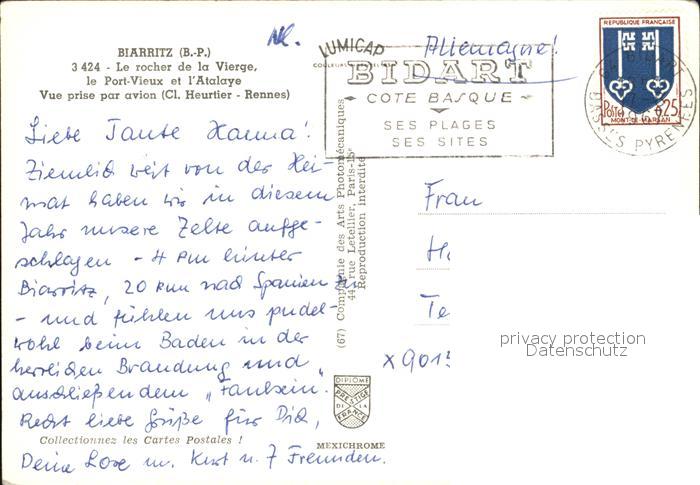 BIARRITZ (B.-P.)
3 424 - Le rocher de la Vierge,
le Port-Vieux et l'Atalaye
Vue prise par avion (Cl. Heurtier - Rennes)
LUMICAP
Allemagne!
BIDART
COTE BASQUE
SES PLAGES
SES SITES
REPUBLIQUE FRANÇAISE
Postes 0,25
MONT-DE-MARSAN
BIDART
BASSES PYRENEES
Liebe Tante Hanna!
Ziemlich weit von der Hei-
mat haben wir in diesem
Jahr unsere Zelte aufge-
schlagen - 4 km hinter
Biarritz, 20 km nach Spanien
- und fühlen uns pudel-
wohl beim Baden in der
herrlichen Brandung und
anschließendem „Faulsein".
Recht liebe Grüße für Dich,
Deine Lore u. Kurt u. 7 Freunden.
Collectionnez les Cartes Postales !
(67) Compagnie des Arts Photomécaniques
44, rue Letellier, Paris-15e
Reproduction interdite
DIPLOME
PRESTIGE
DE LA
FRANCE
MEXICHROME
Frau
H
Te
x 901
privacy protection
Datenschutz